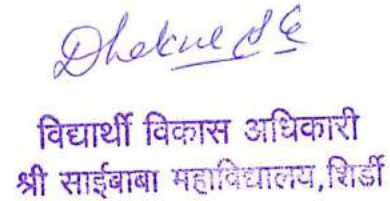 Dhokne S E
विद्यार्थी विकास अधिकारी
श्री साईबाबा महाविद्यालय, शिर्डी